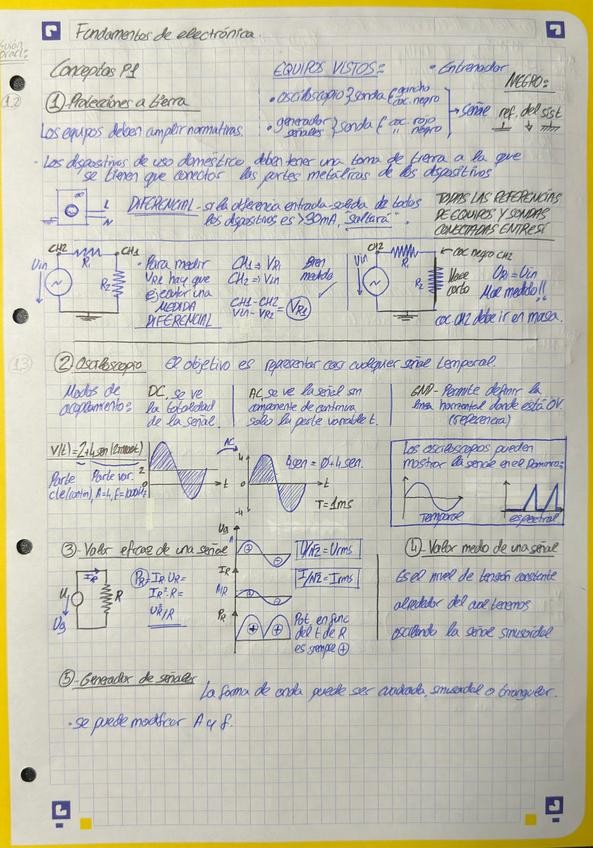 Fundamentos de electrónica.
Conceptos P1
EQUIPOS VISTOS:
• Entrenador
• osciloscopio } sonda { gancho
coc. negro
• generador
señales } sonda { coc. rojo
" negro
NEGRO:
→ señal ref. del sist
① Protecciones a tierra
Los equipos deben cumplir normativas.
· Los dispositivos de uso doméstico, deben tener una toma de tierra a la que
se tienen que conectar las partes metálicas de los dispositivos
L
N
DIFERENCIAL - si la diferencia entrada-salida de todos
los dispositivos es >30mA, "saltará".
TODAS LAS REFERENCIAS
DE EQUIPOS Y SONDAS
CONECTADAS ENTRE SÍ
CH2 CH1
Vin R1 R2
• Para medir
VR1 hay que
ejecutar una
MEDIDA
DIFERENCIAL
CH1 → VR2
CH2 → Vin
CH1-CH2
Bien
medido
CH2
Vin R1 R2
← coc negro CH2
Hace
corto
UR1 = Vin
Mal medido!!
coc CH2 debe ir en masa.
② Osciloscopio El objetivo es representar casi cualquier señal temporal.
Modos de
acoplamiento:
DC, se ve
la totalidad
de la señal.
AC, se ve la señal sin
componente de continua
solo la parte variable t.
GND - Permite definir la
línea horizontal donde está 0V.
(referencia)
V(t)=2+4sen(2π1000t)
Parte
cte(contin)
Parte var.
A=4, f=1000Hz
2
t
AC
4
-4
t
4sen = 0+4sen.
T=1ms
Los osciloscopios pueden
mostrar la señal en el dominio:
temporal
espectral
③ Valor eficaz de una señal
U1
Ug
IR
R
PR = IR·UR =
IR²·R =
UR²/R
UR
A
U/√2 = Urms
IR
A/R
I/√2 = Irms
PR
+ +
Pot. en func
del t de R
es siempre ⊕
④ Valor medio de una señal
Es el nivel de tensión constante
alrededor del cual tenemos
oscilando la señal sinusoidal
⑤ Generador de señales La forma de onda puede ser cuadrada, sinusoidal o triangular.
· se puede modificar A y f.